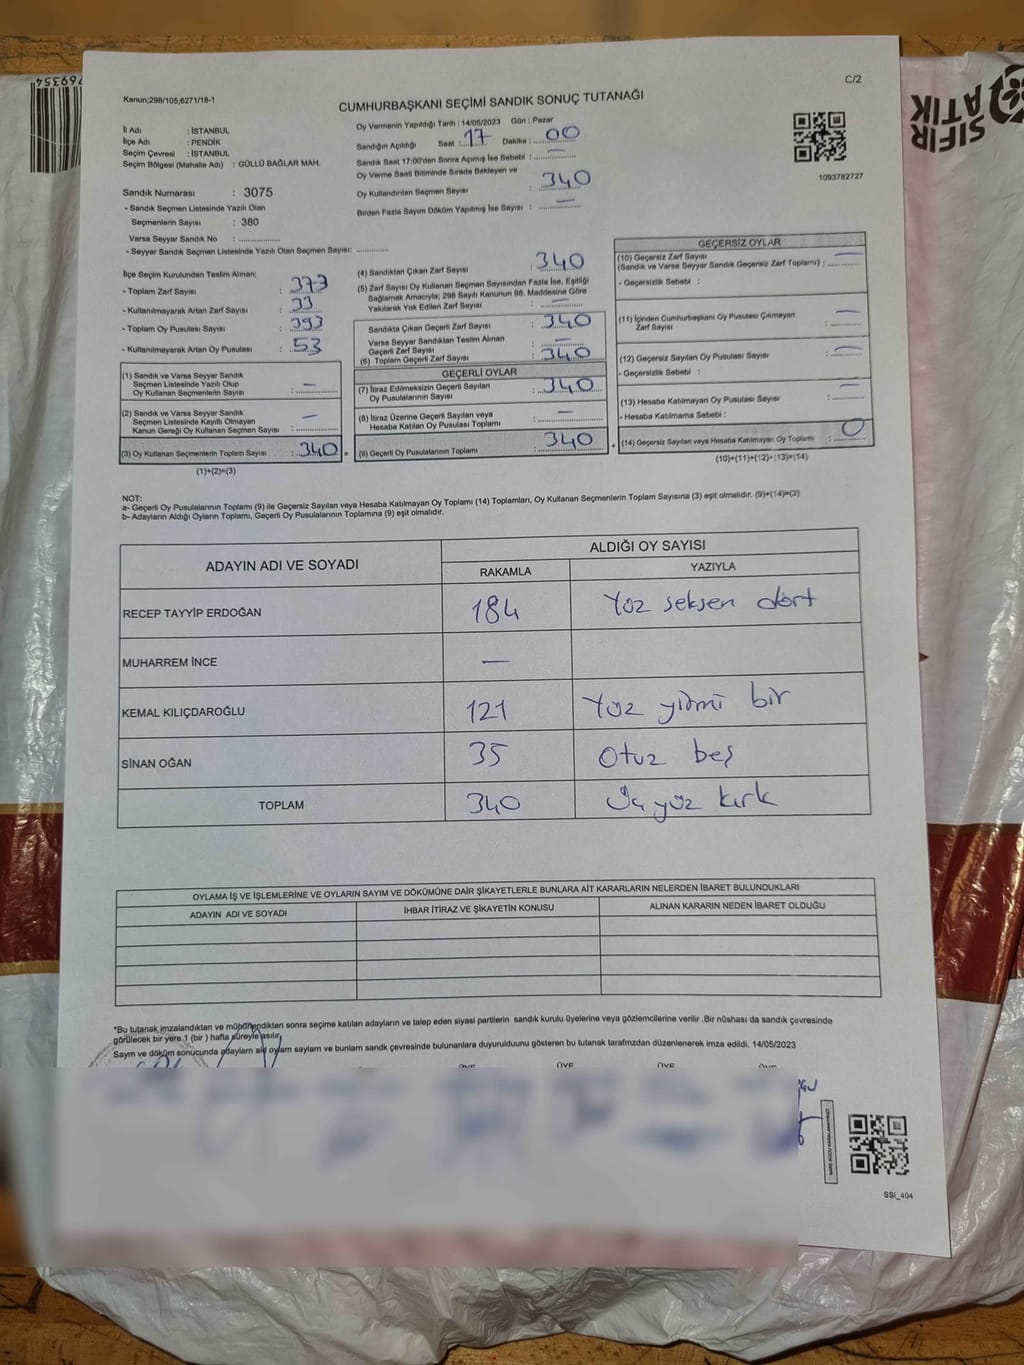 769354
SIFIR
ATIK
C/2
Kanun;298/105;6271/18-1
CUMHURBAŞKANI SEÇİMİ SANDIK SONUÇ TUTANAĞI
İl Adı : İSTANBUL
İlçe Adı : PENDİK
Seçim Çevresi : İSTANBUL
Seçim Bölgesi (Mahalle Adı) : GÜLLÜ BAĞLAR MAH.
Sandık Numarası : 3075
- Sandık Seçmen Listesinde Yazılı Olan
Seçmenlerin Sayısı : 380
Varsa Seyyar Sandık No : ..............
- Seyyar Sandık Seçmen Listesinde Yazılı Olan Seçmen Sayısı: ...........
Oy Vermenin Yapıldığı Tarih : 14/05/2023 Gün : Pazar
Sandığın Açıldığı Saat : 17 Dakika : 00
Sandık Saat 17:00'den Sonra Açılmış İse Sebebi : —
Oy Verme Saati Bitiminde Sırada Bekleyen ve
Oy Kullandırılan Seçmen Sayısı : 340
Birden Fazla Sayım Döküm Yapılmış İse Sayısı : —
1093782727
İlçe Seçim Kurulundan Teslim Alınan;
- Toplam Zarf Sayısı : 373
- Kullanılmayarak Artan Zarf Sayısı : 33
- Toplam Oy Pusulası Sayısı : 393
- Kullanılmayarak Artan Oy Pusulası : 53
(1) Sandık ve Varsa Seyyar Sandık
Seçmen Listesinde Yazılı Olup
Oy Kullanan Seçmenlerin Sayısı : —
(2) Sandık ve Varsa Seyyar Sandık
Seçmen Listesinde Kayıtlı Olmayan
Kanun Gereği Oy Kullanan Seçmen Sayısı : —
(3) Oy Kullanan Seçmenlerin Toplam Sayısı : 340
(1)+(2)=(3)
(4) Sandıktan Çıkan Zarf Sayısı : 340
(5) Zarf Sayısı Oy Kullanan Seçmen Sayısından Fazla İse, Eşitliği
Sağlamak Amacıyla; 298 Sayılı Kanunun 98. Maddesine Göre
Yakılarak Yok Edilen Zarf Sayısı : —
Sandıkta Çıkan Geçerli Zarf Sayısı : 340
Varsa Seyyar Sandıktan Teslim Alınan
Geçerli Zarf Sayısı : —
(6) Toplam Geçerli Zarf Sayısı : 340
GEÇERLİ OYLAR
(7) İtiraz Edilmeksizin Geçerli Sayılan
Oy Pusulalarının Sayısı : 340
(8) İtiraz Üzerine Geçerli Sayılan veya
Hesaba Katılan Oy Pusulası Toplamı : —
(9) Geçerli Oy Pusulalarının Toplamı : 340
GEÇERSİZ OYLAR
(10) Geçersiz Zarf Sayısı
(Sandık ve Varsa Seyyar Sandık Geçersiz Zarf Toplamı) : —
- Geçersizlik Sebebi :
(11) İçinden Cumhurbaşkanı Oy Pusulası Çıkmayan
Zarf Sayısı : —
(12) Geçersiz Sayılan Oy Pusulası Sayısı : —
- Geçersizlik Sebebi :
(13) Hesaba Katılmayan Oy Pusulası Sayısı : —
- Hesaba Katılmama Sebebi :
(14) Geçersiz Sayılan veya Hesaba Katılmayan Oy Toplamı : 0
(10)+(11)+(12)+(13)=(14)
NOT:
a- Geçerli Oy Pusulalarının Toplamı (9) ile Geçersiz Sayılan veya Hesaba Katılmayan Oy Toplamı (14) Toplamları, Oy Kullanan Seçmenlerin Toplam Sayısına (3) eşit olmalıdır. (9)+(14)=(3)
b- Adayların Aldığı Oyların Toplamı, Geçerli Oy Pusulalarının Toplamına (9) eşit olmalıdır.
ADAYIN ADI VE SOYADI ALDIĞI OY SAYISI
RAKAMLA YAZIYLA
RECEP TAYYİP ERDOĞAN 184 Yüz seksen dört
MUHARREM İNCE —
KEMAL KILIÇDAROĞLU 121 Yüz yirmi bir
SİNAN OĞAN 35 Otuz beş
TOPLAM 340 Üç yüz kırk
OYLAMA İŞ VE İŞLEMLERİNE VE OYLARIN SAYIM VE DÖKÜMÜNE DAİR ŞİKAYETLERLE BUNLARA AİT KARARLARIN NELERDEN İBARET BULUNDUKLARI
ADAYIN ADI VE SOYADI İHBAR İTİRAZ VE ŞİKAYETİN KONUSU ALINAN KARARIN NEDEN İBARET OLDUĞU
*Bu tutanak imzalandıktan ve mühürlendikten sonra seçime katılan adayların ve talep eden siyasi partilerin sandık kurulu üyelerine veya gözlemcilerine verilir .Bir nüshası da sandık çevresinde
görülecek bir yere 1 (bir ) hafta süreyle asılır.
Sayım ve döküm sonucunda adayların ald oyların sayların ve bunların sandk çevresinde bulunanlara duyurulduunu gösteren bu tutanak tarafmzdan düzenlenerek imza edildi. 14/05/2023
ÜYE ÜYE ÜYE ÜYE
SSI_404